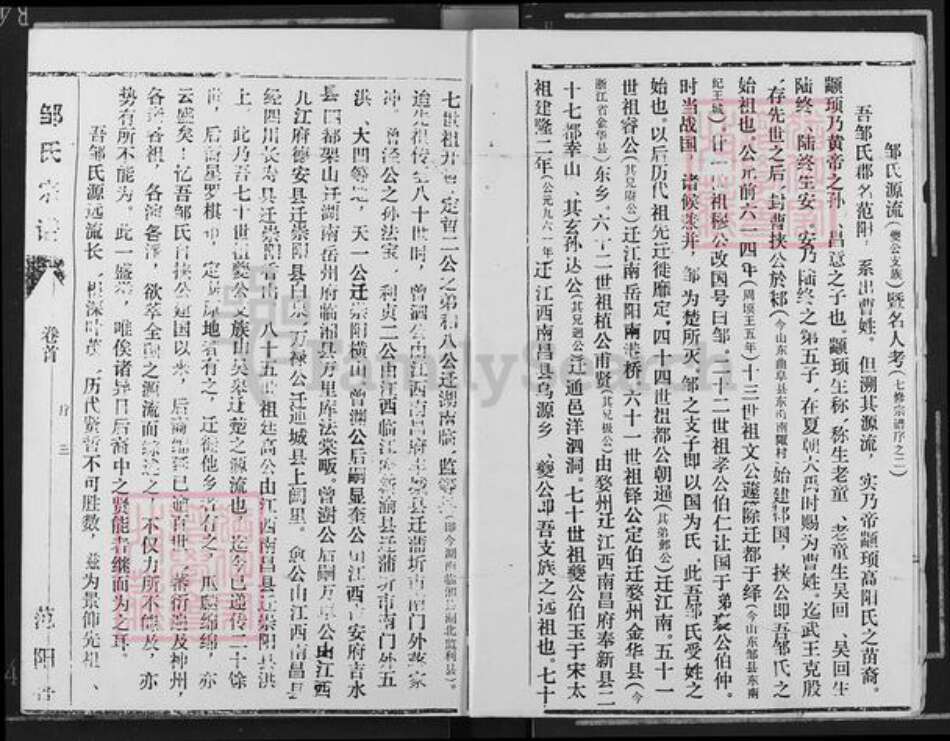 邹氏源流(夔公支族)暨名人考(七修宗谱序之二)
吾邹氏郡名范阳,系出曹姓。但溯其源流,实乃帝颛顼高阳氏之苗裔。
颛顼乃黄帝之孙,昌意之子也。颛顼生称,称生老童、老童生吴回、吴回生
陆终、陆终生安,安乃陆终之第五子,在夏朝大禹时赐为曹姓。迄武王克殷
存先世之后,封曹挟公於邾(今山东曲阜县东南南陬村)始建邾国,挟公即吾邹氏之
始祖也。公元前六一四年(周顷王五年)十三世祖文公蘧篨迁都于绎(今山东邹县东南
纪王城),廿一世祖穆公改国号曰邹,二十二世祖孝公伯仁让国于弟襄公伯仲。
时当战国,诸候兼并,邹为楚所灭,邹之支子即以国为氏,此吾邹氏受姓之
始也。以后历代祖先迁徙靡定,四十四世祖都公朝通(其弟鄴公)迁江南。五十一
世祖睿公(其兄赓公)迁江南岳阳南港桥,六十一世祖铎公定伯迁婺州金华县(今
浙江省金华县)东乡。六十二世祖植公甫贤(其兄极公)由婺州迁江西南昌府奉新县二
十七都幸山、其玄孙达公(其兄迥公)迁通邑洋泗洞。七十世祖夔公伯玉于宋太
祖建隆二年(公元九六一年)迁江西南昌县乌源乡、夔公即吾支族之远祖也。七十
七世祖 定晋二公之弟和八公迁湖南临 监 (即今湖南临湘 湖北监利县)。
迨 祖传至八十世时,曾泗公由江西南昌府 县迁蒲圻市南门外 家
冲。曾泾公之孙法宝、利贞二公由江西临江府新淦县迁蒲圻市南门外五
洪、大凹等地,天一公迁崇阳横山,曾渊公后嗣显奎公由江西 安府吉水
县四都架山迁湖南岳州府临湘县万里库法棠畈。曾澍公后嗣万 公由江西
九江府德安县迁崇阳县白泉,万禄公迁通城县上阔里。 公由江西南昌县
经四川长寿县迁崇阳 、八十五世祖廷高公由江西南昌县迁崇阳县洪
上,此乃吾七十世祖夔公支族由吴豫迁楚之源流也,迄今已递传二十馀
世,后裔星罗棋布,定居原地者有之,迁徙他乡者有之,瓜瓞绵绵,亦
云盛矣!忆吾邹氏自挟公建国以来,后裔绵延已逾百世,蕃衍遍及神州,
各宗各祖,各派各谱,欲萃全国之源流而综述之、不仅力所不能及,亦
势有所不能为。此一盛举,唯俟诸异日后裔中之贤能者继而为之耳。
吾邹氏源远流长、根深叶茂、历代贤哲不可胜数,兹为景仰先祖、
邹氏宗谱
卷首
序
三
范阳堂